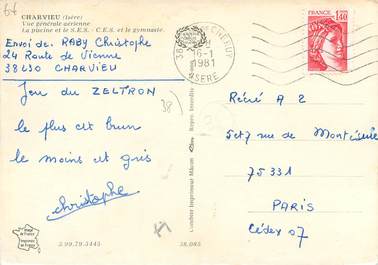 CHARVIEU (Isère)
Vue générale aérienne
La piscine et le S.E.S. - C.E.S. et le gymnase.
Envoi de. RABY Christophe
24 Route de Vienne
38630 CHARVIEU
Jeu du ZELTRON
38
le plus est brun
le moins et gris
christophe
16-1
1981
ISERE
1,40
Récré A 2
5et7 rue de
75331
PARIS
Cédex 07
Combier Imprimeur Mâcon
Repro. Interdite
3.99.79.5445
38.085